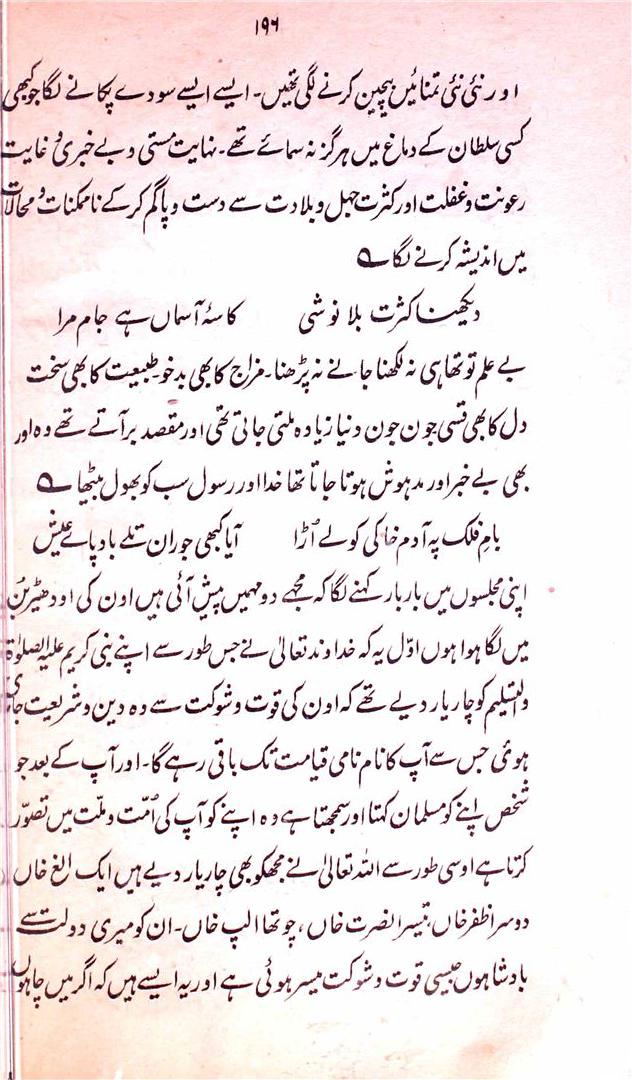 ۱۹۶
اور نئی نئی تمنائیں بیچین کرنے لگی تھیں۔ ایسے ایسے سودے پکانے لگا جو کبھی
کسی سلطان کے دماغ میں ہرگز نہ سمائے تھے۔ نہایت مستی و بے خبری و غایت
رعونت و غفلت اور کثرت جہل و بلادت سے دست و پا گم کر کے ناممکنات و محالات
میں اندیشہ کرنے لگا ؎
دیکھنا کثرت بلا نوشی کاسۂ آسماں ہے جام مرا
بے علم تو تھا ہی نہ لکھنا جانے نہ پڑھنا۔ مزاج کا بھی بدخو طبیعت کا بھی سخت
دل کا بھی قسی جون جون دنیا زیادہ ملتی جاتی تھی اور مقصد بر آتے تھے وہ اور
بھی بے خبر اور مدہوش ہوتا جاتا تھا خدا اور رسول سب کو بھول بیٹھا ؎
بامِ فلک پہ آدم خاکی کو لے اُڑا آیا کبھی جو ران تلے باد پائے عیش
اپنی مجلسوں میں بار بار کہنے لگا کہ مجھے دو مہمیں پیش آئی ہیں اون کی اودھیڑبُن
میں لگا ہوا ہوں اوّل یہ کہ خداوند تعالیٰ نے جس طور سے اپنے نبی کریم علیہ الصلوٰۃ
والتسلیم کو چار یار دیے تھے کہ اون کی قوت و شوکت سے وہ دین و شریعت جاری
ہوئی جس سے آپ کا نام نامی قیامت تک باقی رہے گا۔ اور آپ کے بعد جو
شخص اپنے کو مسلمان کہتا اور سمجھتا ہے وہ اپنے کو آپ کی اُمّت و ملّت میں تصوّر
کرتا ہے اوسی طور سے اللہ تعالیٰ نے مجھکو بھی چار یار دیے ہیں ایک الغ خاں
دوسرا ظفر خاں، تیسرا نصرت خاں، چوتھا الپ خاں۔ ان کو میری دولت سے
بادشاہوں جیسی قوت و شوکت میسر ہوئی ہے اور یہ ایسے ہیں کہ اگر میں چاہوں